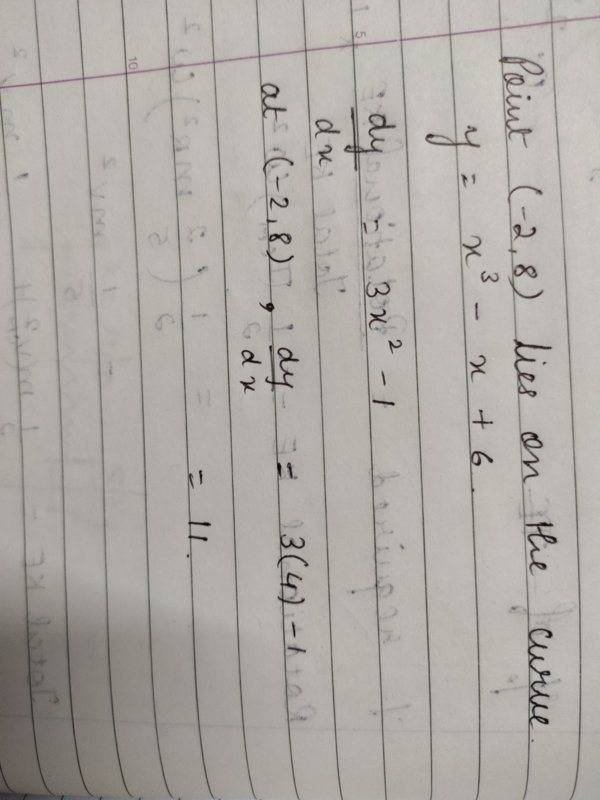 Point (-2,8) lies on the curve.
y = x³ - x + 6.
dy/dx = 3x² - 1
at (-2,8), dy/dx = 3(4) - 1
= 11.